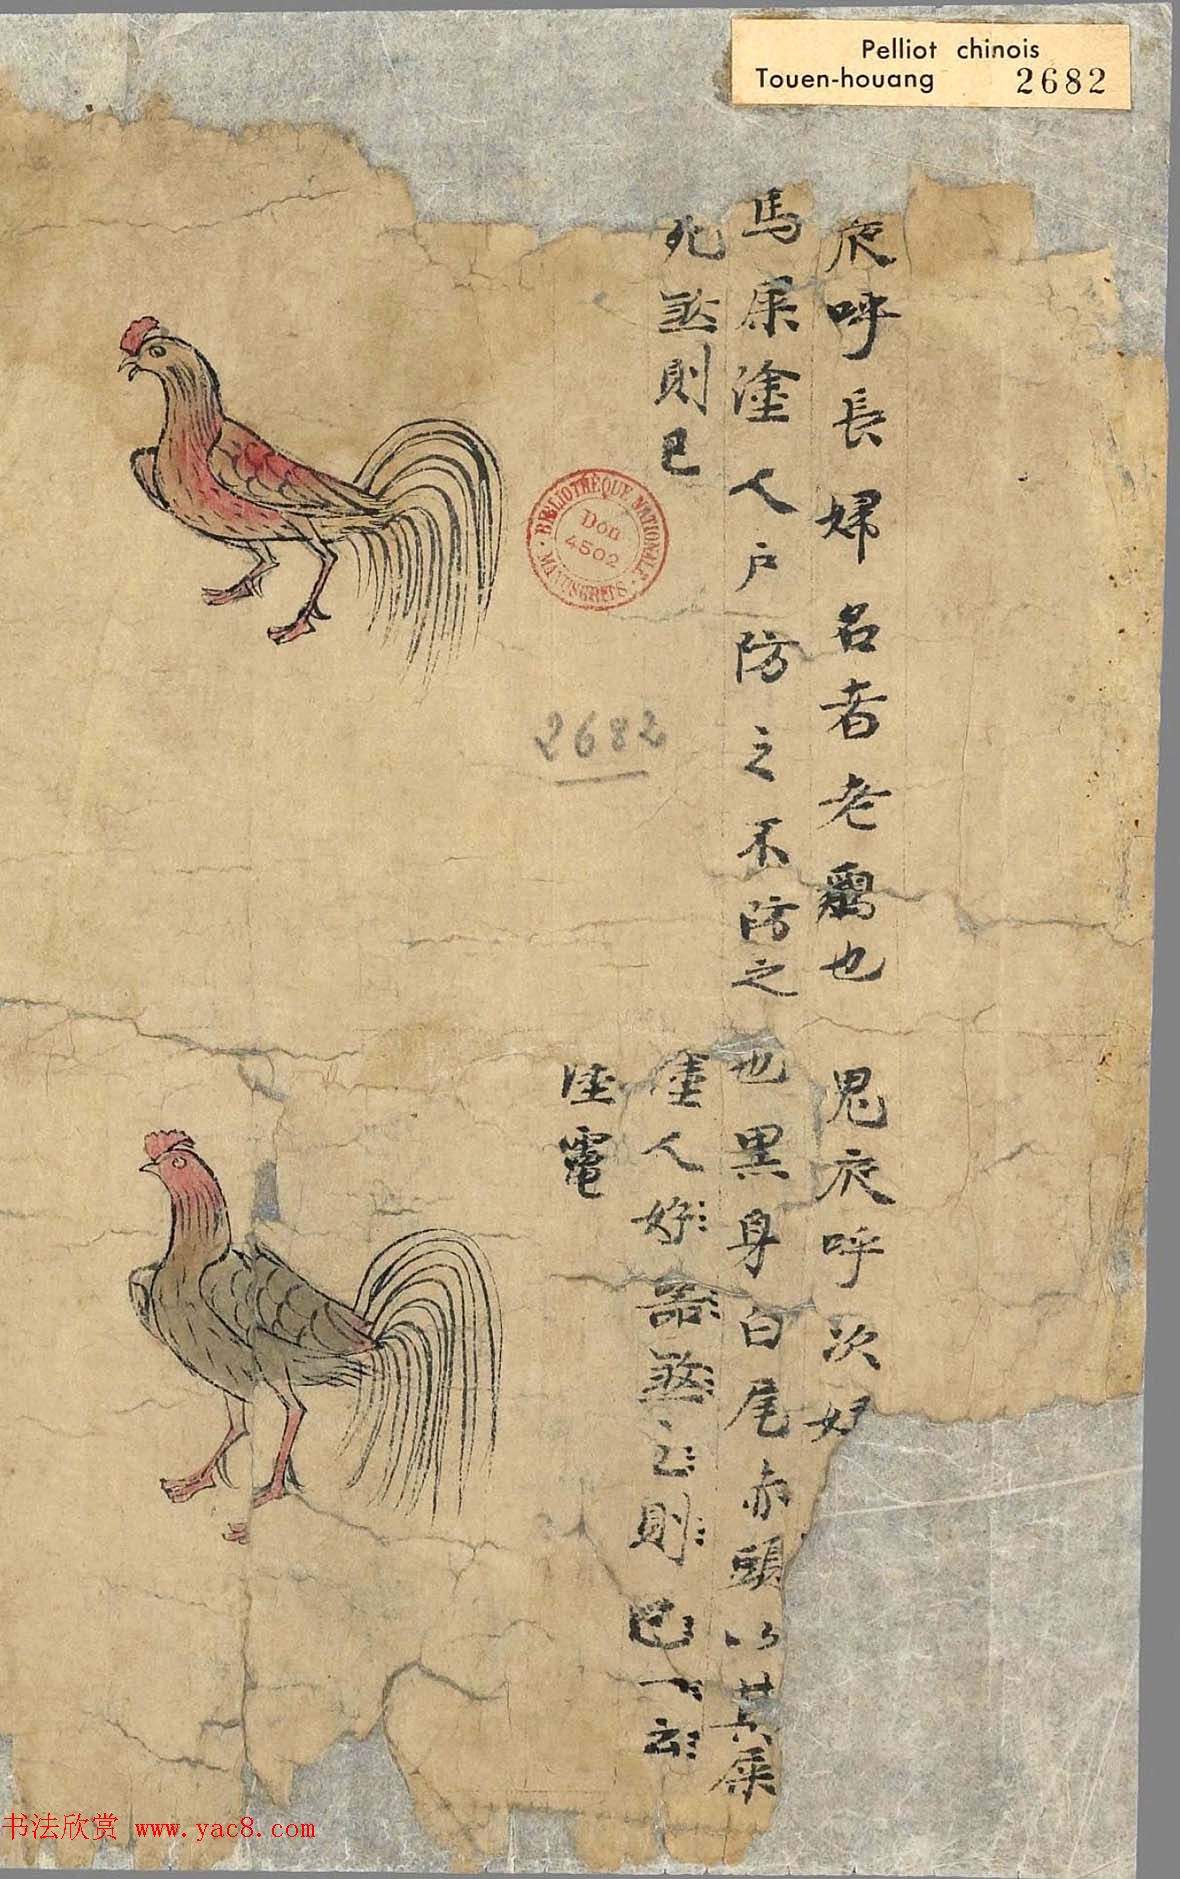 Pelliot chinois
Touen-houang 2682
夜呼長婦名者老鷄也
馬屎塗人户防之不防之
死煞則已
鬼夜呼次婦
也黒身白尾赤頭以其屎
塗人好器煞之則已一云
電
BIBLIOTHÈQUE NATIONALE
MANUSCRITS
Don
4502
2682
书法欣赏 www.yac8.com